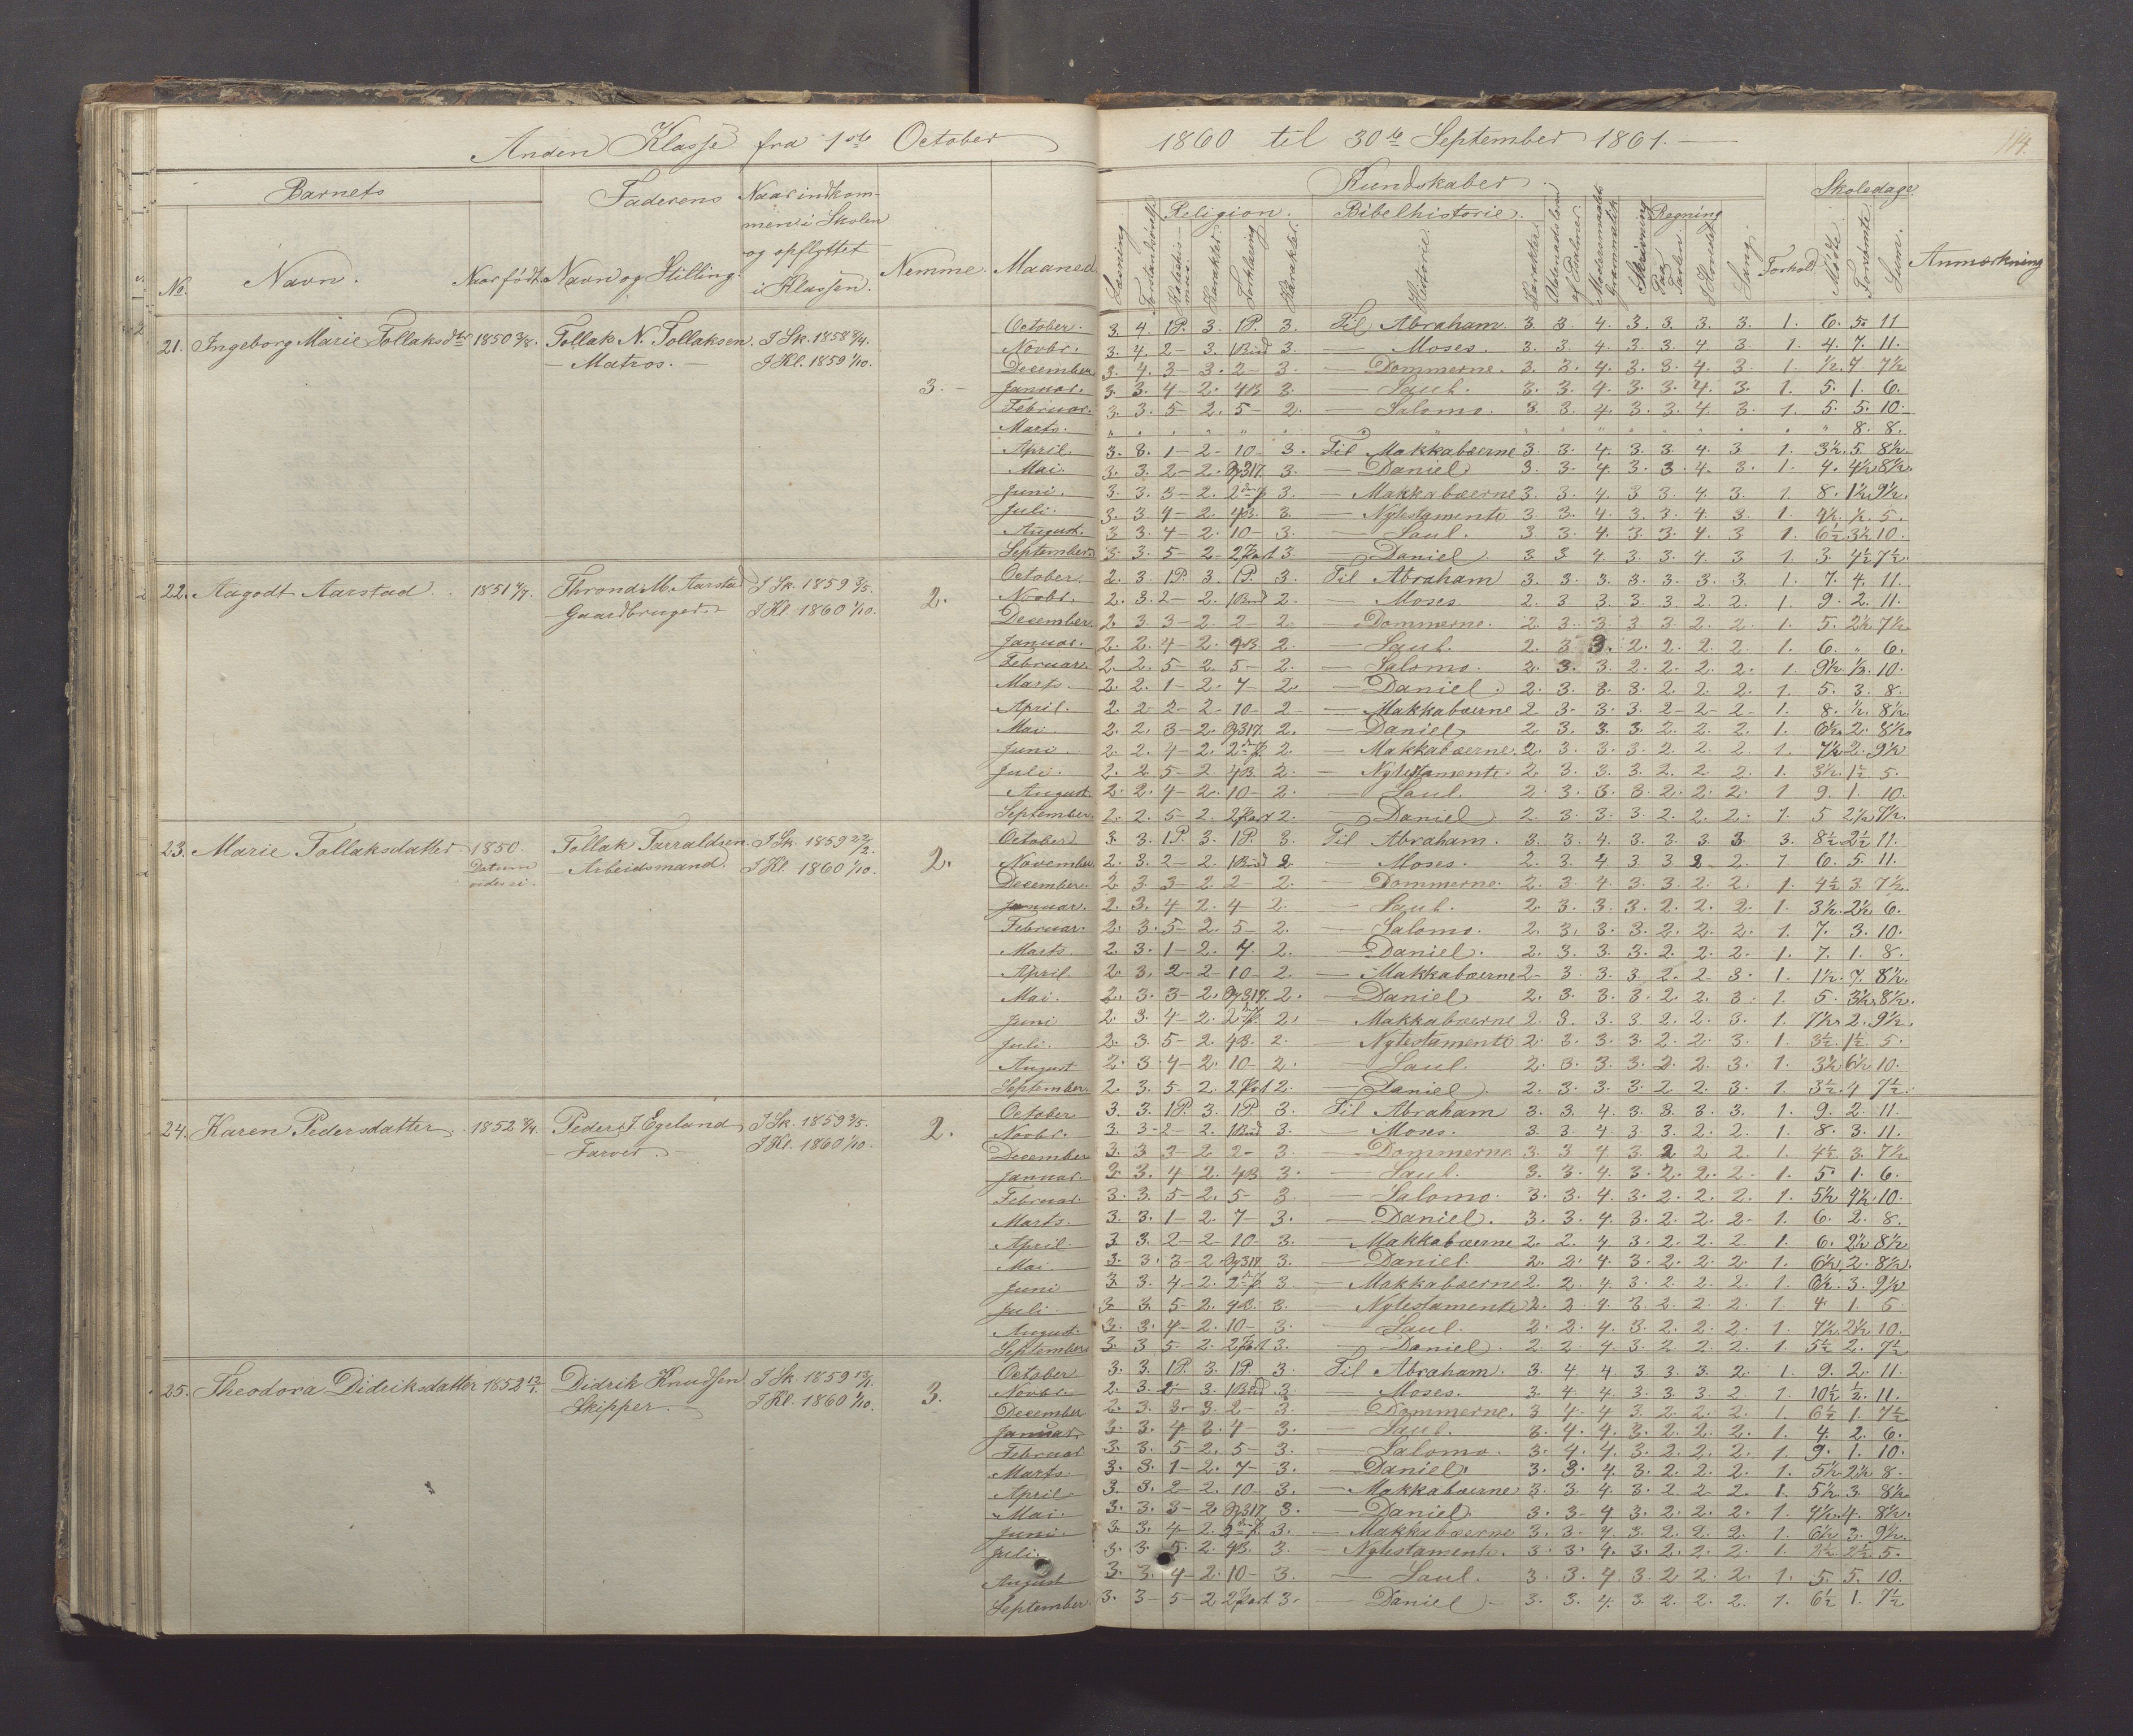 Anden Klasse fra 1ste October 1860 til 30te September 1861.
114.
Barnets
Faderens
Naar indkom-
men i Skolen
og opflyttet
i Klassen.
No.
Navn.
Naar født.
Navn og Stilling.
Nemme.
Maaned
Kundskaber.
Læsning
Religion.
Forklaring
Karakter.
Bibelhistorie.
Historie.
Karakter.
Skrivning
Regning
Paa Tavlen.
I Hovedet.
Sang.
Forhold
Skoledage
Mødte.
Forsømte.
Sum.
Anmærkning
21. Ingeborg Marie Tollaksdtr 1850 Tollak N. Tollaksen I Sk. 1858
Matros. I Kl. 1859 1/10.
3.
October. 3. 4. 1P. 3. 1P. 3. Til Abraham. 3. 3. 4. 3. 3. 3. 3. 1. 6. 5. 11
Novbr. 3. 4. 2 – 3. 1 Bud 3. – Moses. 3. 3. 4. 3. 3. 4 3. 1. 4. 7. 11.
December 3. 4. 3 – 3. 2 – 3. – Dommerne. 3. 3. 4. 3. 3. 4. 3. 1. ½. 7 7½
Januar. 3. 3. 4 – 2. 4B 3. – Saul. 3. 3. 4. 3. 3. 4. 3. 1. 5. 1. 6.
Februar. 3. 3. 5 – 2. 5 – 2. – Salomo. 3. 3. 4. 3. 3. 4. 3. 1. 5. 5. 10.
Marts. " " " " " " " " 8. 8.
April. 3. 3. 1 – 2 – 10 – 3. Til Makkabæerne 3. 3. 4. 3. 3. 4. 3 1. 3½. 5. 8½.
Mai. 3. 3. 2 – 2. 3. – Daniel 3. 3. 4. 3. 3. 4. 3. 1. 4. 4½. 8½.
Juni. 3. 3. 3 – 2. 3. – Makkabæerne 3. 3. 4. 3 3. 4. 3. 1. 8. 1½. 9½.
Juli. 3. 3. 4 – 2. 4B. 3. – Nytestamente 3. 3. 4. 3. 3. 4. 3. 1. 4½. ½. 5.
August. 3 3. 4 – 2. 10 – 3. – Saul. 3. 3. 4. 3. 3. 4. 3 1. 6½ 3½ 10.
September 3. 3. 5 – 2 – 2 Part 3. – Daniel. 3. 3 4 3. 3. 4 3 1. 3. 4½ 7½.
22. Aagodt Aarstad. 1851 Thrond M. Aarstad I Sk. 1859 3/5.
Gaardbruger. I Kl. 1860 1/10.
2.
October. 2. 3. 1P. 3. 1P. 3. Til Abraham 3. 3. 3. 3. 3. 3. 3. 1. 7. 4. 11.
Novbr. 2. 3. 2 – 2. 1 Bud 2. Moses 2. 3 3. 3. 3. 2. 2. 1. 9. 2. 11.
December. 2. 3. 3 – 2. 2 – 2. – Dommerne. 2. 3. 3. 3 3. 2. 2. 1. 5. 2½. 7½
Januar. 2. 2. 4 – 2. 4B. 2. – Saul. 2. 3 3. 2. 2. 2. 2. 1. 6. " 6.
Februar. 2. 2. 5 – 2. 5 – 2. – Salomo. 2. 3. 3. 2. 2. 2. 2. 1. 9½. ½. 10.
Marts. 2. 2. 1 – 2. 7 – 2. – Daniel. 2. 3. 3. 3. 2. 2. 2. 1. 5. 3. 8.
April. 2. 2 2 – 2 – 10 – 2 – Makkabæerne 2 3. 3. 3. 2 – 2 – 2 – 1. 8. ½. 8½.
Mai. 2. 2. 3 – 2. 2. – Daniel 2. 3. 3. 3 2. 2. 2. 1. 6½. 2. 8½.
Juni. 2. 2. 4 – 2. 2. – Makkabæerne. 2. 3. 3. 3. 2. 2. 2. 1. 7½. 2. 9½
Juli. 2. 2. 5 – 2 4B. 2. – Nytestamente. 2. 3. 3. 3. 2. 2. 2. 1. 3½. 1½ 5.
August. 2. 2. 4 – 2. 10 – 2. – Saul. 2. 3. 3. 3. 2. 2. 2. 1 9. 1. 10.
September. 2. 2. 5 – 2. 2 Part 2. – Daniel 2. 3. 3. 3. 2. 2. 2. 1. 5 2½ 7½.
23. Marie Tollaksdatter 1850. Tollak Tarraldsen I Sk. 1859
Datum vides ei. Arbeidsmand. I Kl. 1860 1/10.
2.
October 3. 3. 1P. 3. 1P. 3. Til Abraham. 3. 3. 4. 3. 3. 3. 3. 3. 8½ 2½ 11.
November. 2. 3. 2 – 2. 1 Bud 2. – Moses. 2. 3. 4. 3 3 2 2. 1 6. 5. 11.
December. 2. 3. 3 – 2. 2 – 2. – Dommerne. 2. 3. 4. 3. 3. 2. 2. 1. 4½ 3. 7½.
Januar. 2. 3. 4 – 2. 4 – 2. – Saul. 2. 3. 3. 3. 2. 2. 2. 1. 3½. 2½. 6.
Februar. 2. 3. 5 – 2. 5 – 2. – Salomo. 2. 3. 3. 3. 2. 2. 2. 1. 7. 3. 10.
Marts. 2. 3. 1 – 2. 7. 2. – Daniel. 2. 3. 3. 3. 2. 2. 2. 1. 7. 1. 8.
April. 2. 3. 2 – 2 – 10 – 2. – Makkabæerne 2 – 3. 3. 3. 2. 2. 3. 1. 1½. 7. 8½.
Mai. 2. 3. 3 – 2. 2. – Daniel 2. 3. 3. 3. 2. 2. 3. 1. 5. 3½. 8½.
Juni 2. 3. 4 – 2. 2. – Makkabæerne 2. 3. 3. 3 2. 2. 3. 1. 7½. 2. 9½.
Juli. 2. 3. 5 – 2. 4B. 2. – Nytestamente 2. 3. 3. 3. 2. 2. 3. 1. 3½. 1½ 5.
August 2. 3. 4 – 2. 10 – 2. – Saul. 2. 3. 3. 3. 2. 2. 3. 1. 3½ 6½ 10.
September. 2. 3. 5 – 2. 2 Part 2. – Daniel. 2. 3. 3. 3. 2. 2. 3. 1. 3½. 4 7½.
24. Karen Pedersdatter. 1852 Peder J. Egeland I Sk. 1859 3/5.
Farver. I Kl. 1860 1/10.
2.
October 3. 3. 1P. 3. 1P. 3. Til Abraham 3. 3. 4. 3. 3. 3. 3. 1. 9. 2. 11.
Novbr. 3. 3 – 2 – 2. 1 Bud 3. – Moses. 3. 3. 4. 3. 3. 2. 2. 1. 8. 3. 11.
December 3. 3 3 – 2 2 – 3. – Dommerne. 3. 3. 4 3. 2 2 2. 1. 4½ 3. 7½
Januar. 3. 3. 4 – 2. 4B 3. – Saul. 3. 3. 4. 3. 2. 2. 2. 1. 5. 1. 6.
Februar. 3. 3. 5 – 2. 5 – 3. – Salomo. 3. 3. 4. 3. 2. 2. 2. 1. 5½ 4½. 10.
Marts. 3. 3. 1 – 2. 7 – 3. – Daniel. 3. 3. 4. 3. 2. 2. 2. 1. 6. 2. 8.
April. 3 3. 2 – 2 10 – 3. – Makkabæerne 2. 2. 4. 3. 2. 2. 2. 1. 6. 2½ 8½
Mai. 3. 3. 3 – 2. 3. – Daniel. 2. 2. 4. 3. 2. 2. 2. 1. 6½. 2. 8½.
Juni 3. 3. 4 – 2. 3. – Makkabæerne 2. 2. 4. 3. 2. 2. 2. 1. 6½. 3. 9½
Juli. 3. 3. 5 – 2. 4B. 3. – Nytestamente 2. 2. 4. 3. 2. 2. 2. 1. 4. 1. 5.
August. 3. 3. 4 – 2. 10 – 3. – Saul. 2. 2. 4. 3. 2. 2. 2. 1. 7½. 2½. 10.
September 3. 3. 5 – 2. 2 Part 3. – Daniel. 2. 2. 4 3. 2. 2. 2. 1. 5½ 2. 7½
25. Theodora Didriksdatter 1852 Didrik Knudsen I Sk. 1859
Skipper. I Kl. 1860 1/10.
3.
October. 3. 3. 1P. 3. 1P. 3. Til Abraham. 3. 4 4 3 3. 3. 2. 1. 9. 2. 11.
Novbr. 2. 3. 2 – 3. 1 Bud 3. – Moses. 3. 4. 4. 3. 3. 3. 2 1. 10½ ½. 11.
December 2. 3. 3 – 3. 2 – 3. – Dommerne. 3 4. 4 3. 2. 2. 2. 1. 6½ 1. 7½
Januar. 3. 3. 4 3. 4 – 3. – Saul. 3. 4. 4. 3. 2. 2. 2. 1. 4. 2. 6.
Februar 3. 3. 5 – 2. 5 – 3. – Salomo. 3. 4. 4. 3. 2. 2. 2. 1. 9. 1. 10.
Marts. 3. 3. 1 – 2. 7 – 3. – Daniel. 3. 3. 4. 3. 2. 2. 2. 1. 5½. 2½ 8.
April 3. 3. 2 – 2. 10 – 3. – Makkabæerne 3. 3. 4. 3. 2 2 2 1. 5½. 3. 8½
Mai. 3. 3. 3 – 2. 3. – Daniel. 3. 3 – 4 3. 2. 2. 2. 1. 4½. 4. 8½.
Juni. 3. 3. 4 – 2. 3. – Makkabæerne 3. 3. 4. 3. 2. 2. 2. 1. 6½ 3. 9½.
Juli. 3. 3. 5. 2. 4B. 3. – Nytestamente. 3. 3. 4. 3. 2. 2. 2. 1. 2½. 2½ 5.
August 3. 3. 4 – 2. 10 – 3. – Saul. 3. 3. 4. 3. 2. 2. 2. 1. 5. 5. 10.
September. 3. 3 – 5 – 2 2 Part 3. – Daniel. 3. 3. 4. 3. 2. 2. 2. 1. 6½ 1. 7½